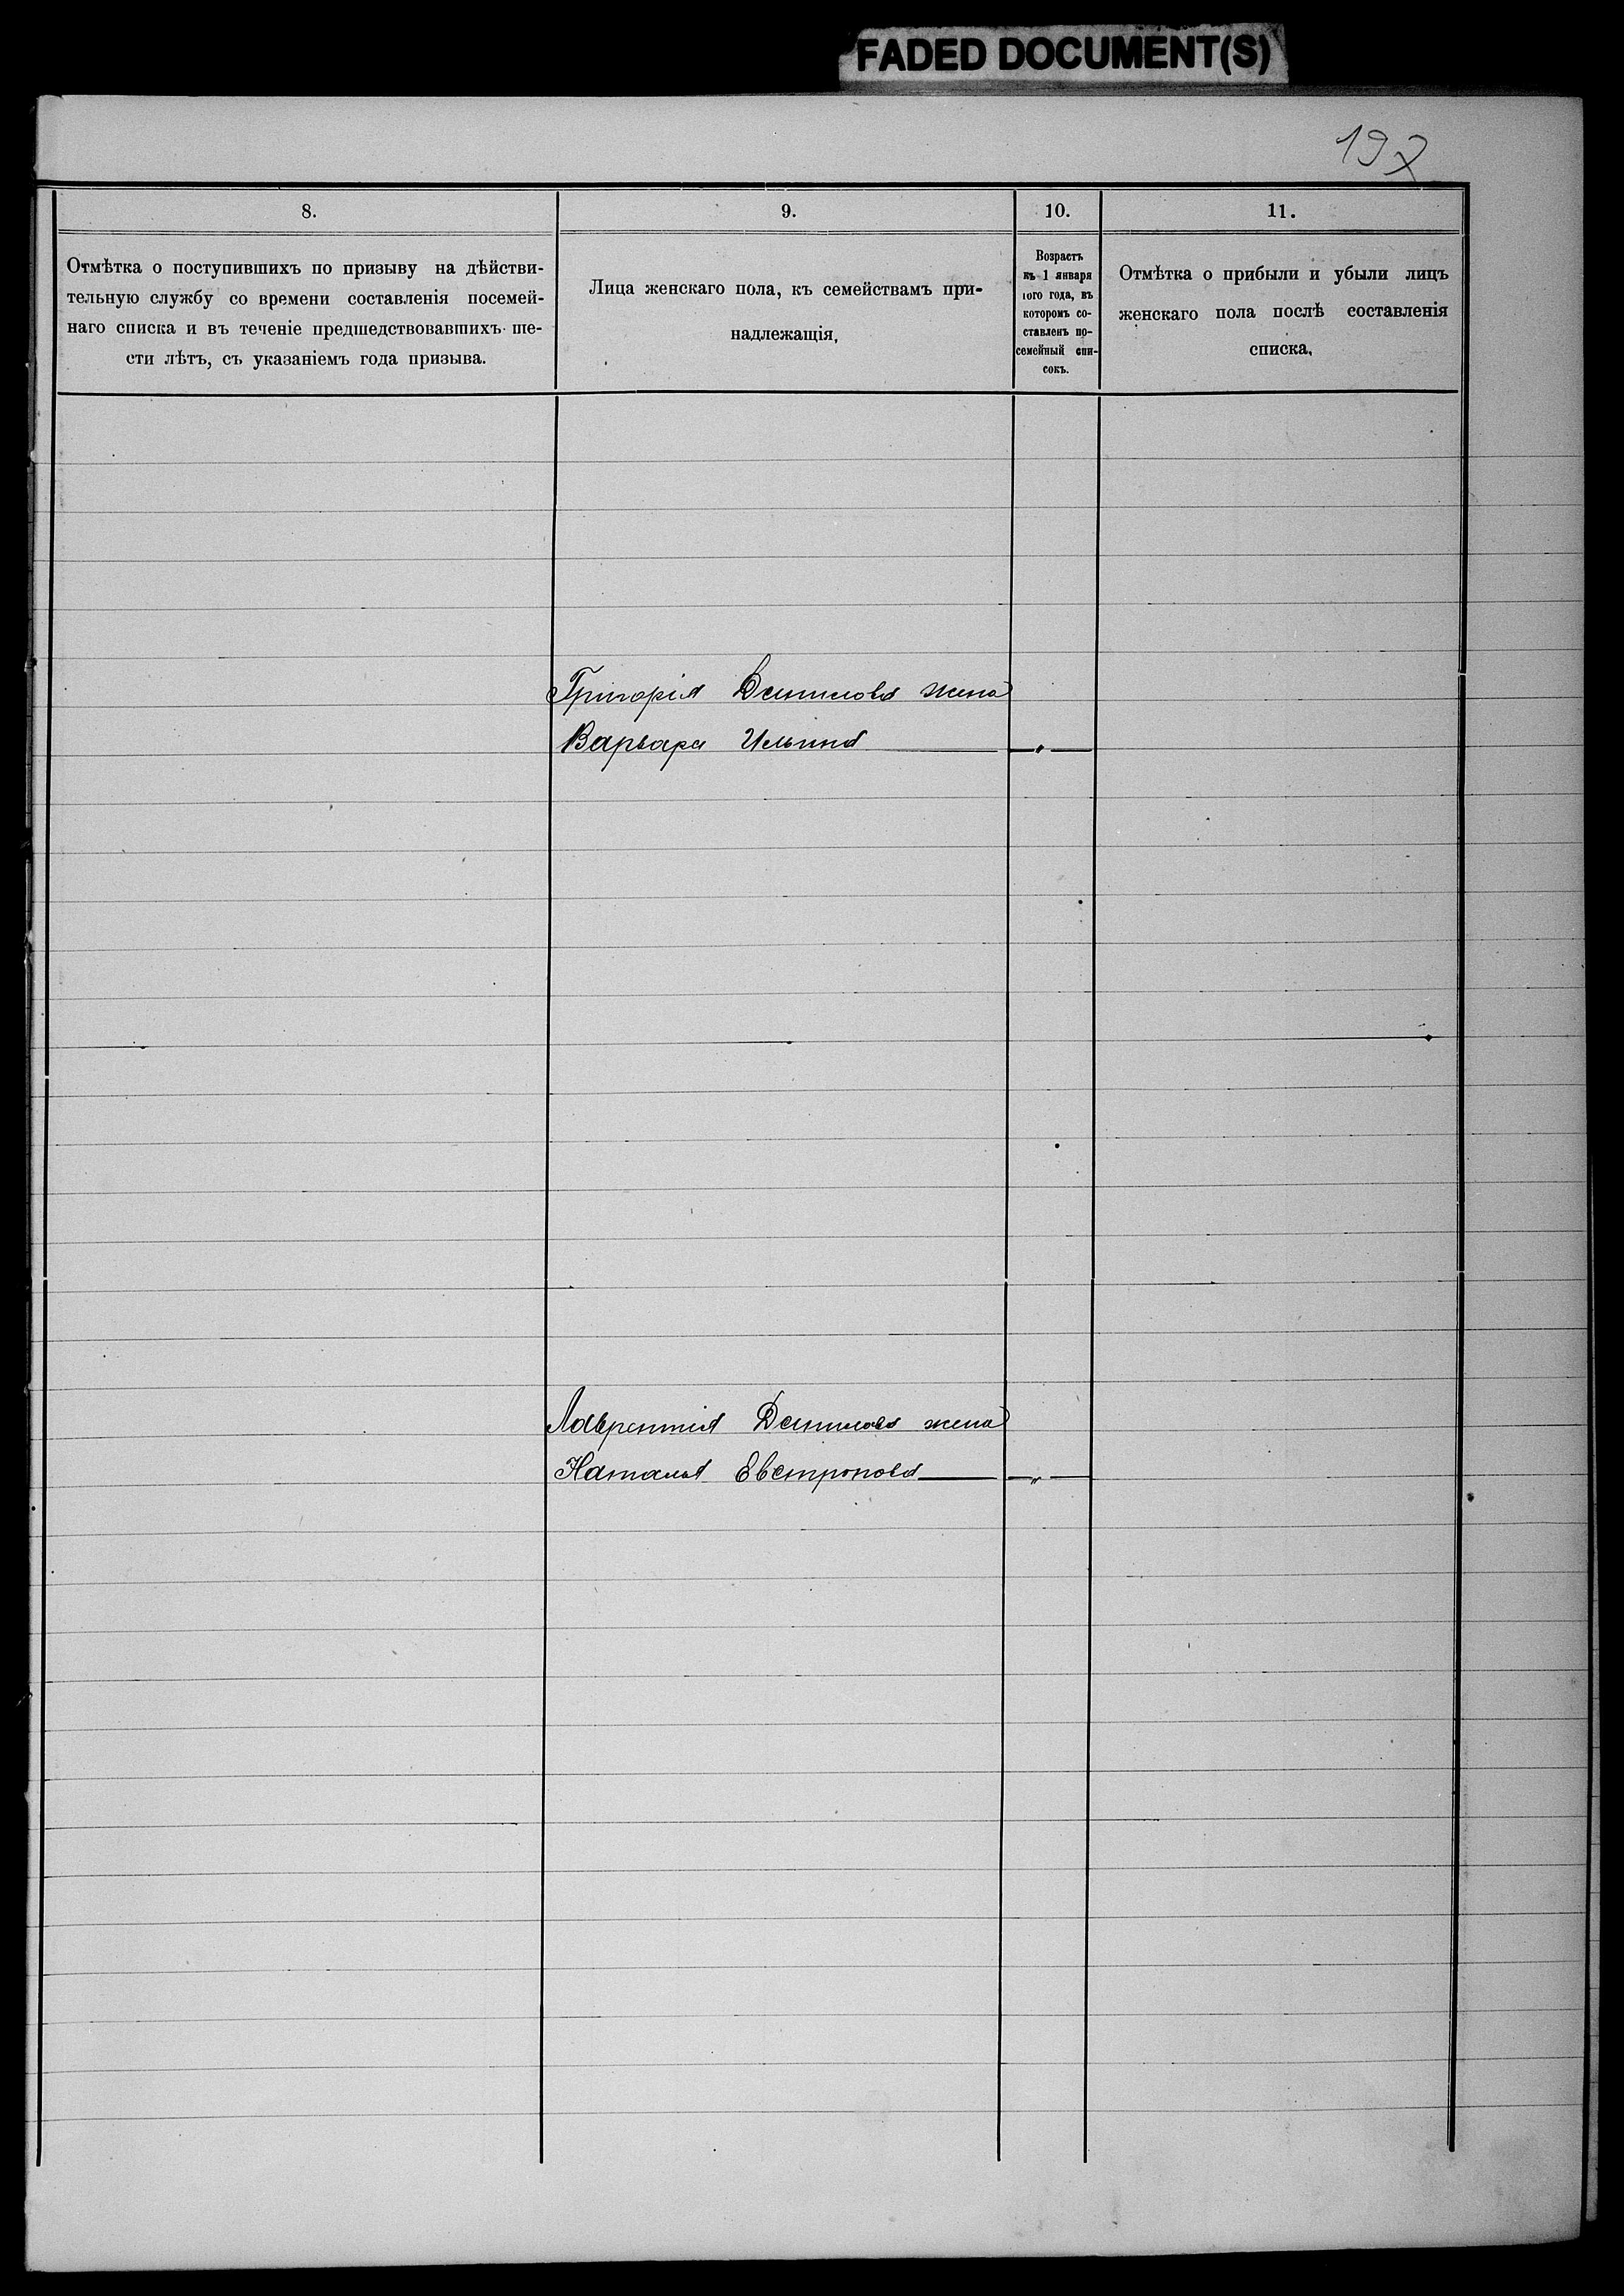 FADED DOCUMENT(S)
197
8.
9.
10.
11.
Отмѣтка о поступившихъ по призыву на дѣйстви-
тельную службу со времени составленія посемей-
наго списка и въ теченіе предшедствовавшихъ ше-
сти лѣтъ, съ указаніемъ года призыва.
Лица женскаго пола, къ семействамъ при-
надлежащія,
Возрастъ
къ 1 января
того года, въ
которомъ со-
ставленъ по-
семейный спи-
сокъ.
Отмѣтка о прибыли и убыли лицъ
женскаго пола послѣ составленія
списка,
Григорія Данилова жена
Варвара Ильина — „ —
Лаврентія Данилова жена
Наталья Евстропова — „ —